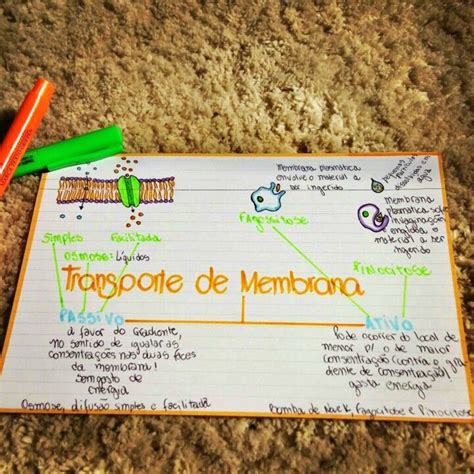 Membrana plasmática
envolve o material a
ser ingerido
pequenas
partículas
dissolvidas em
água
Membrana
plasmática sofre
invaginação
engloba o
material a ser
ingerido
Fagocitose
Simples
Facilitada
Osmose: Líquidos
Pinocitose
Transporte de Membrana
PASSIVO
ATIVO
a favor do Gradiente,
no sentido de igualar as
consentrações nas duas faces
da membrana!
sem gasto de
energia
Pode ocorrer do local de
menor p/ o de maior
consentração (contra o gra
diente de consentração)
gasta energia
Osmose, difusão simples e facilitada
Bomba de Na e K, Fagocitose e Pinocitose